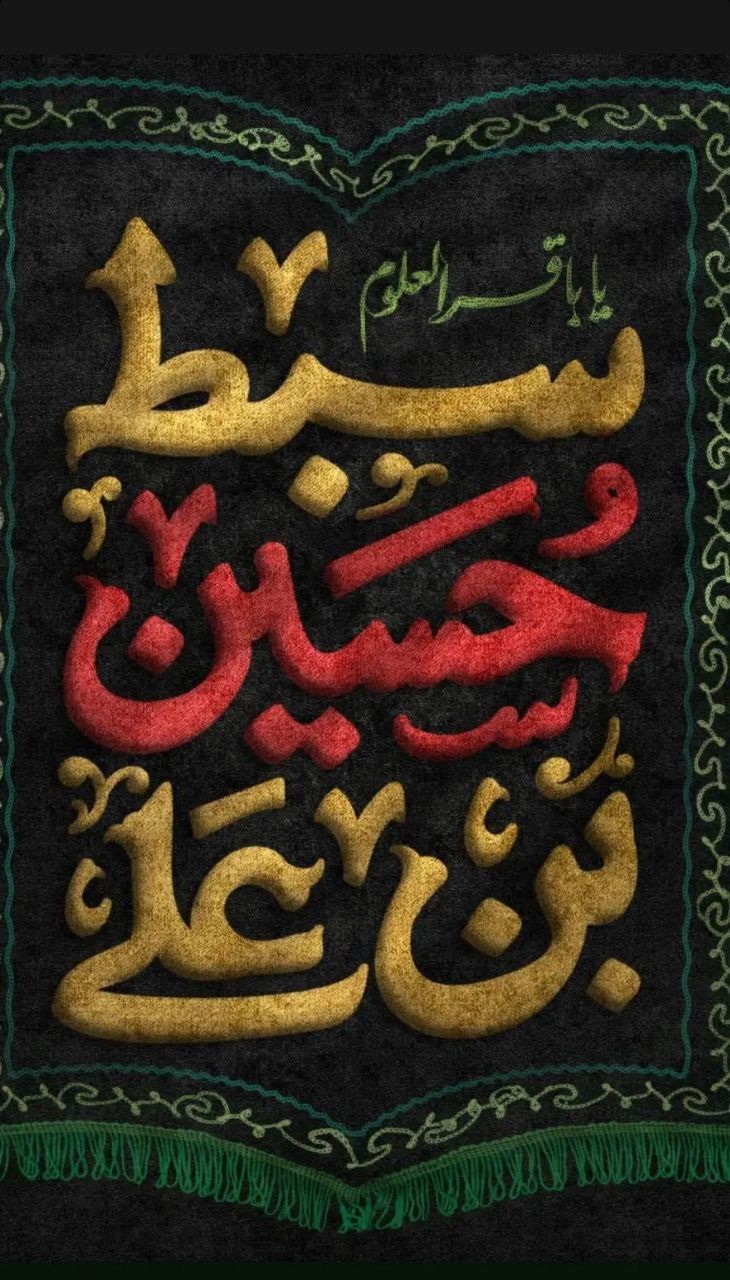 یا باقرالعلوم
سبط
حُسَین
بن عَلے